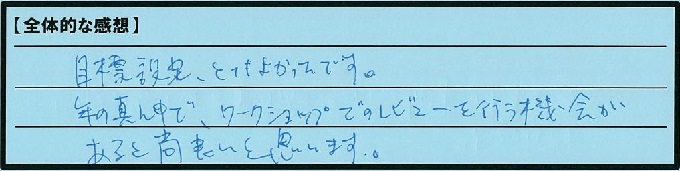 【全体的な感想】
目標設定、とてもよかったです。
年の真ん中で、ワークショップでのレビューを行う機会が
あると尚良いと思います。